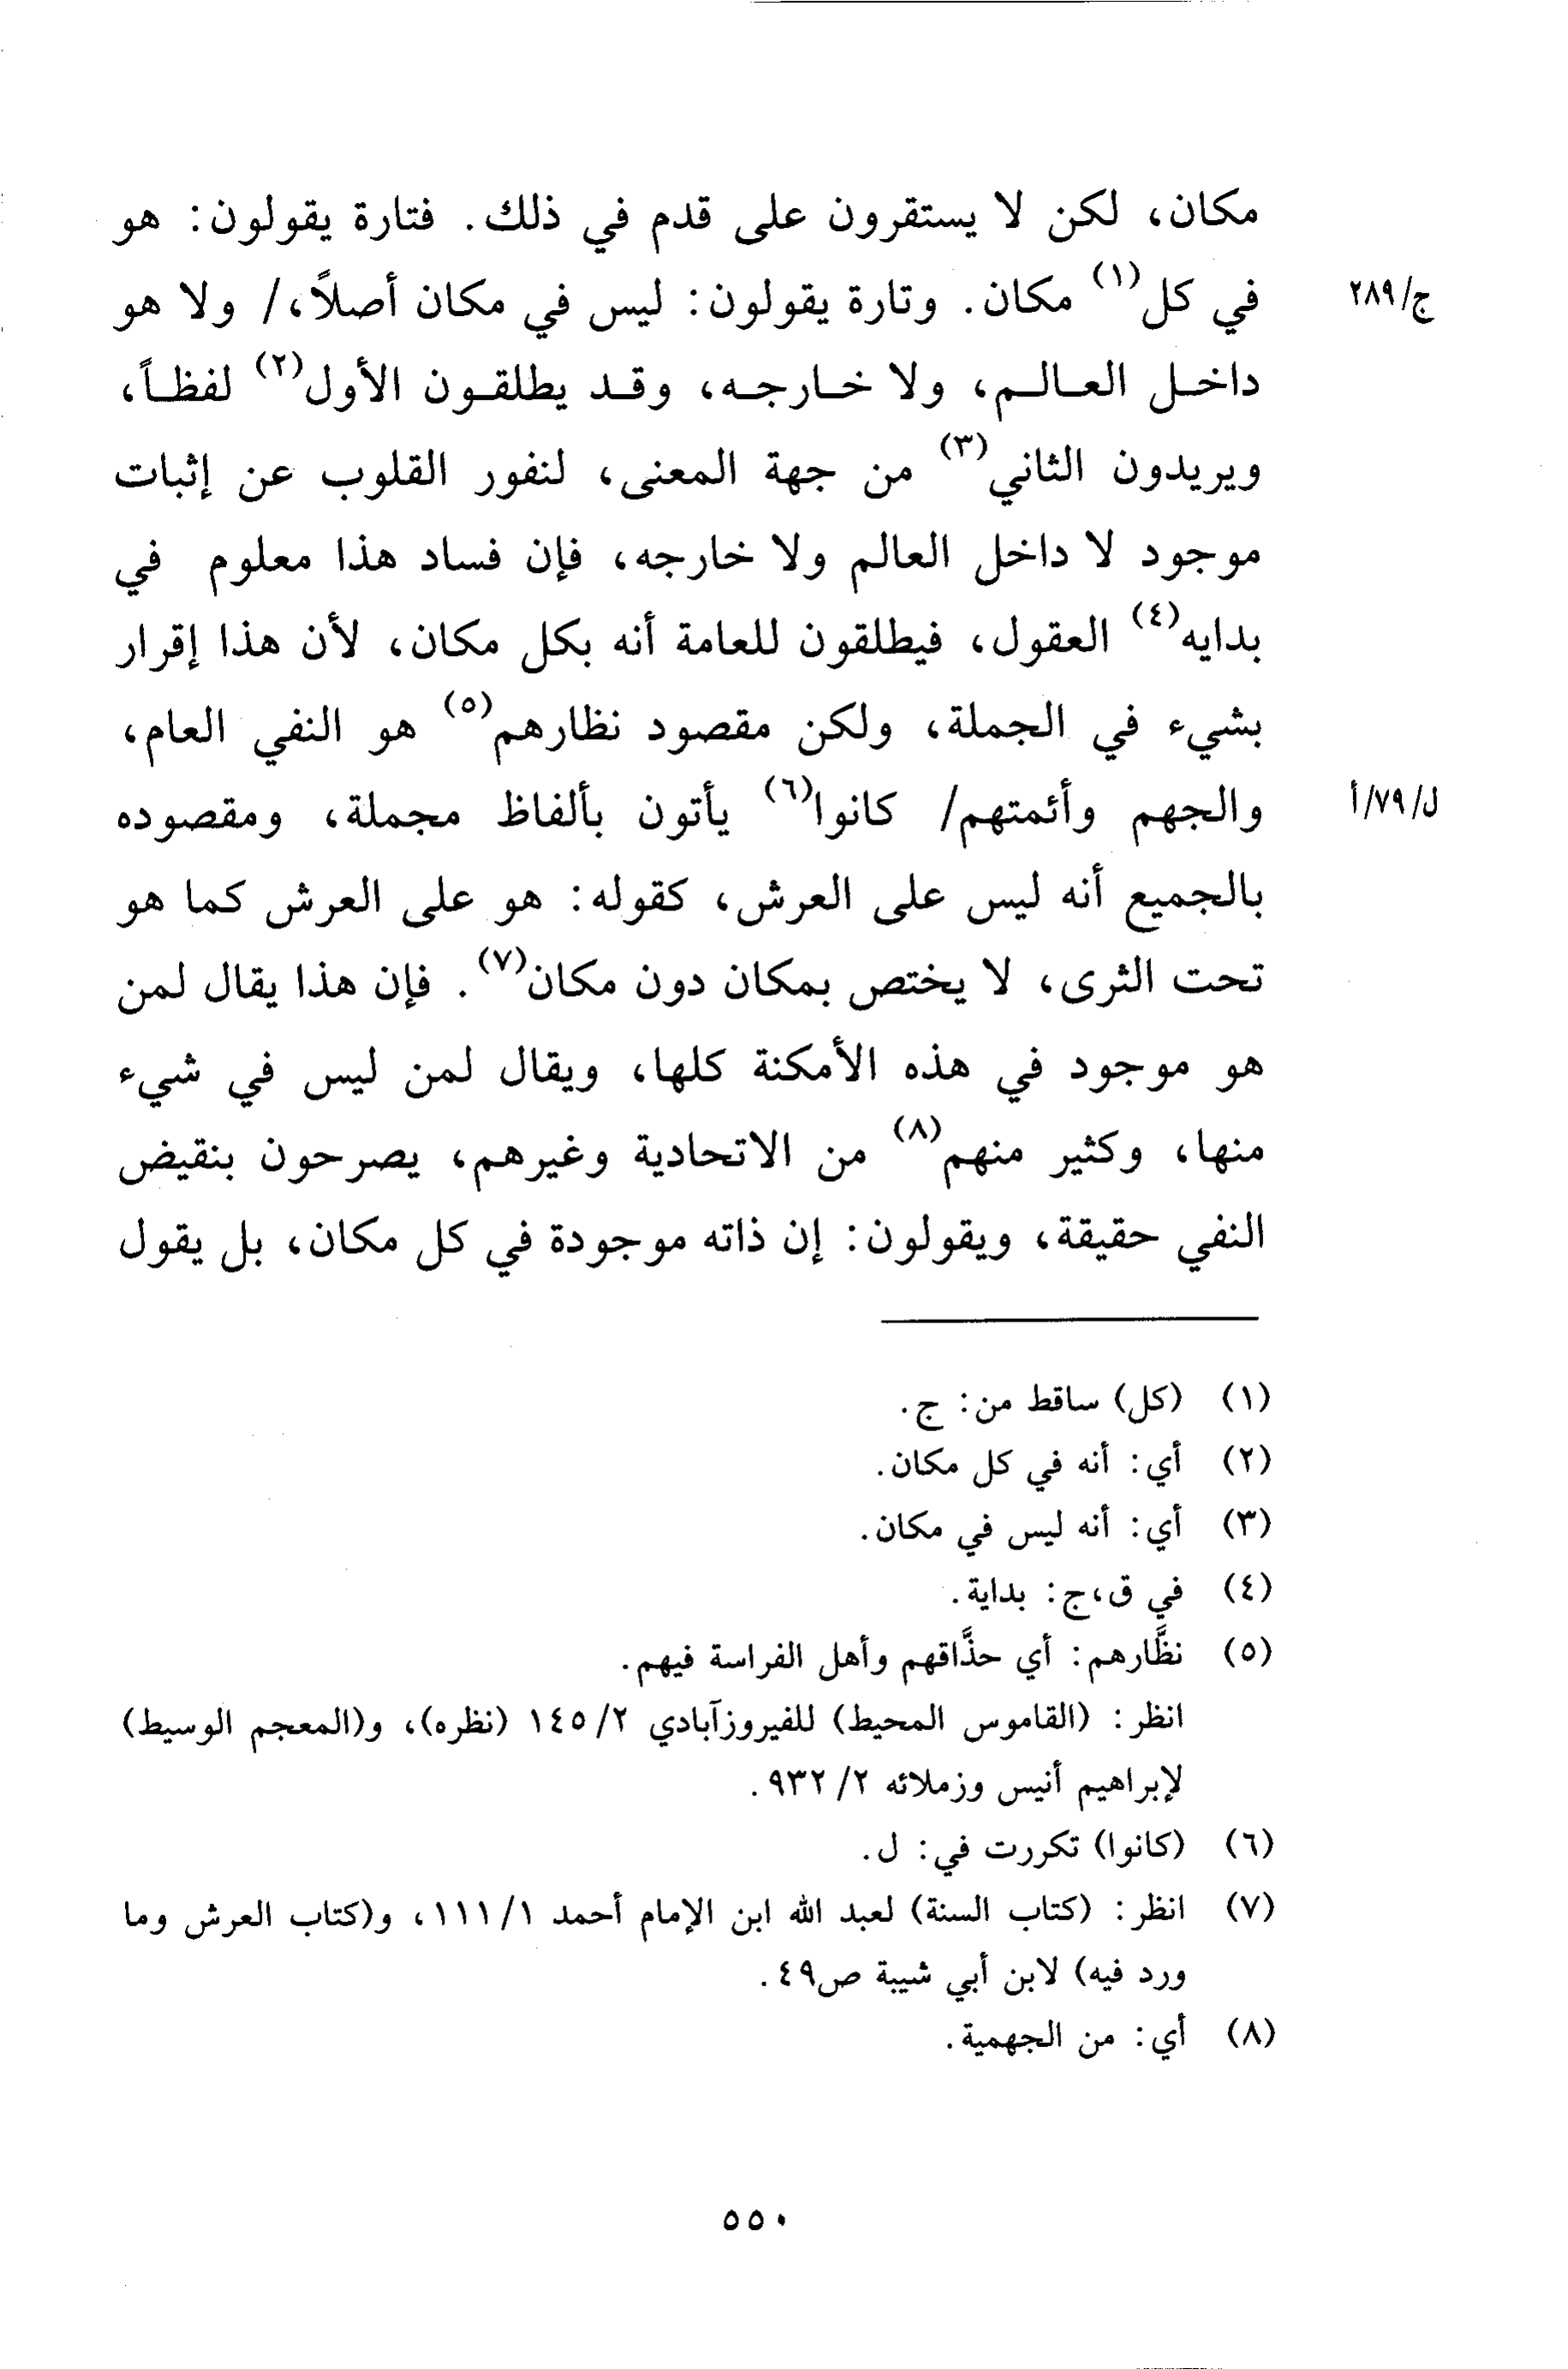 مكان، لكن لا يستقرون على قدم في ذلك. فتارة يقولون: هو
في كل(١) مكان. وتارة يقولون: ليس في مكان أصلاً،/ ولا هو
ج/٢٨٩
داخل العالم، ولا خارجه، وقد يطلقون الأول(٢) لفظاً،
ويريدون الثاني(٣) من جهة المعنى، لنفور القلوب عن إثبات
موجود لا داخل العالم ولا خارجه، فإن فساد هذا معلوم في
بدايه(٤) العقول، فيطلقون للعامة أنه بكل مكان، لأن هذا إقرار
بشيء في الجملة، ولكن مقصود نظارهم(٥) هو النفي العام،
والجهم وأئمتهم/ كانوا(٦) يأتون بألفاظ مجملة، ومقصوده
ل/٧٩/أ
بالجميع أنه ليس على العرش، كقوله: هو على العرش كما هو
تحت الثرى، لا يختص بمكان دون مكان(٧). فإن هذا يقال لمن
هو موجود في هذه الأمكنة كلها، ويقال لمن ليس في شيء
منها، وكثير منهم(٨) من الاتحادية وغيرهم، يصرحون بنقيض
النفي حقيقة، ويقولون: إن ذاته موجودة في كل مكان، بل يقول
(١) (كل) ساقط من: ج.
(٢) أي: أنه في كل مكان.
(٣) أي: أنه ليس في مكان.
(٤) في ق،ج: بداية.
(٥) نظَّارهم: أي حذَّاقهم وأهل الفراسة فيهم.
انظر: (القاموس المحيط) للفيروزآبادي ٢/ ١٤٥ (نظره)، و(المعجم الوسيط)
لإبراهيم أنيس وزملائه ٢/ ٩٣٢.
(٦) (كانوا) تكررت في: ل.
(٧) انظر: (كتاب السنة) لعبد الله ابن الإمام أحمد ١/ ١١١، و(كتاب العرش وما
ورد فيه) لابن أبي شيبة ص٤٩.
(٨) أي: من الجهمية.
٥٥٠